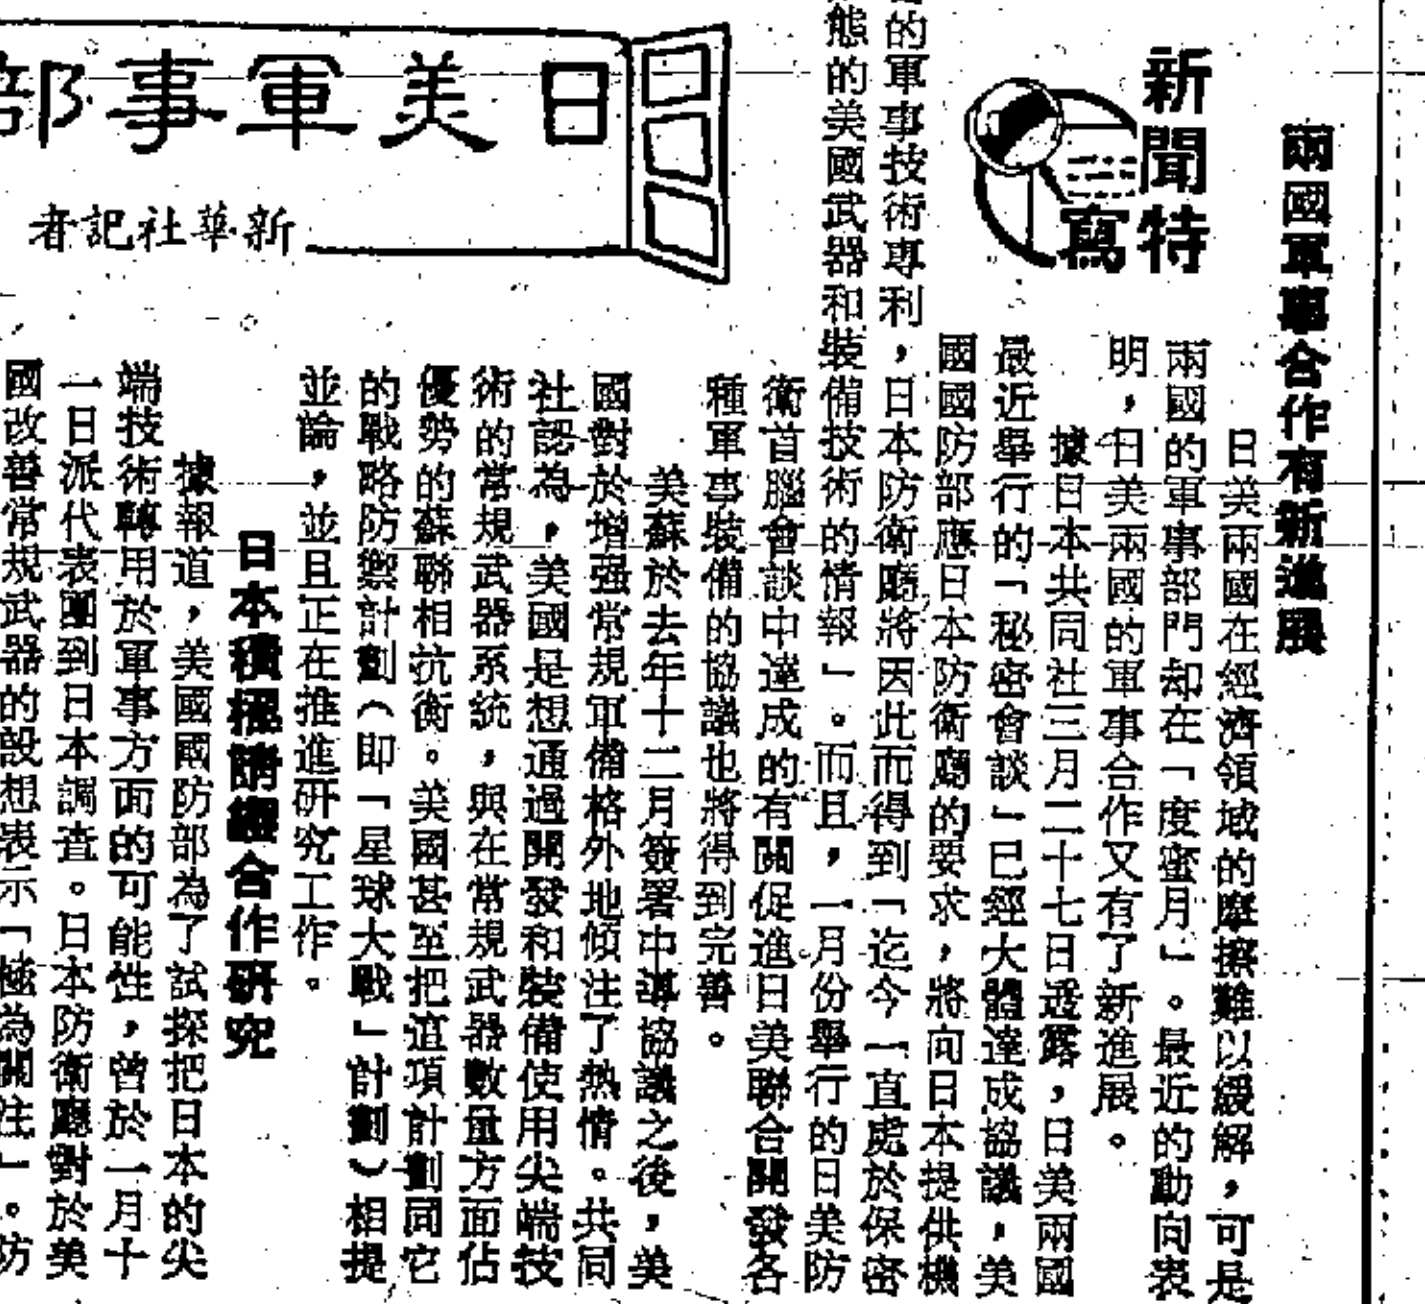 兩國軍事合作有新進展
新聞特寫
日美兩國在經濟領域的摩擦難以緩解，可是
兩國的軍事部門却在「度蜜月」。最近的動向表
明，日美兩國的軍事合作又有了新進展。
據日本共同社三月二十七日透露，日美兩國
最近舉行的「秘密會談」已經大體達成協議，美
國國防部應日本防衛廳的要求，將向日本提供機
的軍事技術專利，日本防衛廳將因此而得到「迄今一直處於保密
態的美國武器和裝備技術的情報」。而且，一月份舉行的日美防
衛首腦會談中達成的有關促進日美聯合開發各
種軍事裝備的協議也將得到完善。
日美軍事部
新華社記者
美蘇於去年十二月簽署中導協議之後，美
國對於增强常規軍備格外地傾注了熱情。共同
社認為，美國是想通過開發和裝備使用尖端技
術的常規武器系統，與在常規武器數量方面佔
優勢的蘇聯相抗衡。美國甚至把這項計劃同它
的戰略防禦計劃（即「星球大戰」計劃）相提
並論，並且正在推進研究工作。
日本積極請纓合作研究
據報道，美國國防部為了試探把日本的尖
端技術轉用於軍事方面的可能性，曾於一月十
一日派代表團到日本調查。日本防衛廳對於美
國改善常規武器的設想表示「極為關注」。防